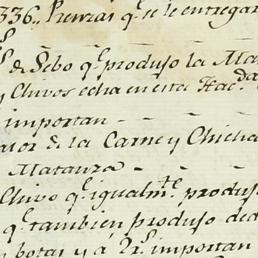 336,, Pienzas q.e se le entregar
@ de Sebo q.e produjo la Mata
y Chivos echa en esta Hac.da
importan
alor de la Carne y Chicha
Matanza
Chivo q.e igualm.te produjo
q.e tambien produjo de
botas y á 2 r.s importan